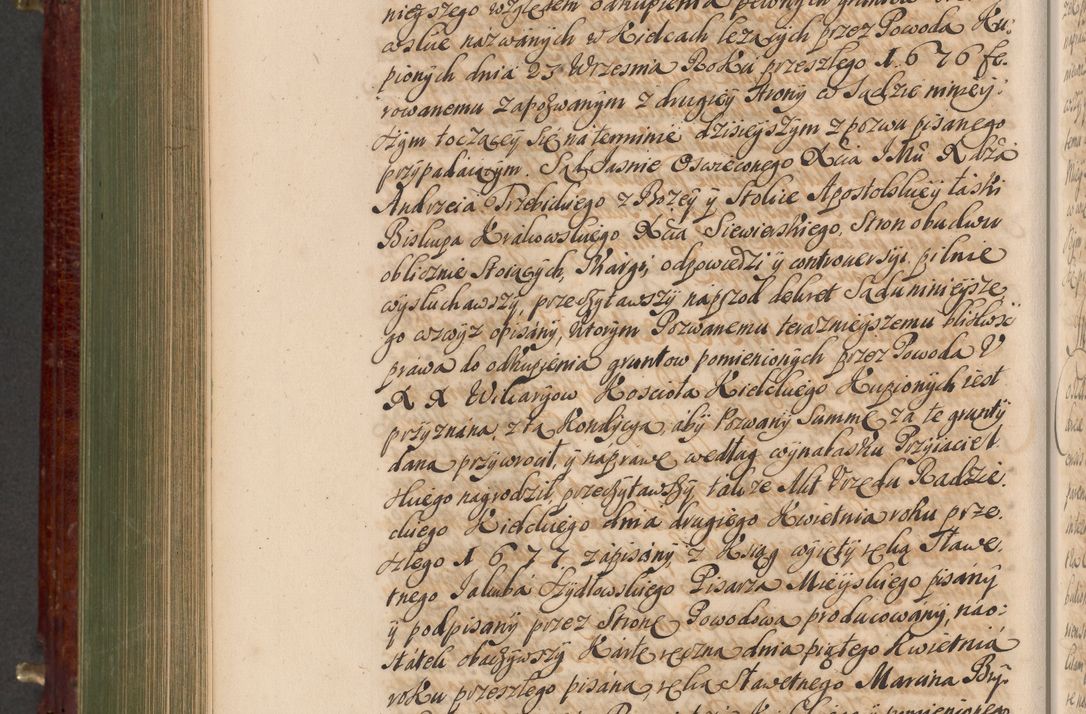 nieyszego względem odkupienia pewnych gruntow
wskie nazwánych w Kielcach leżących przez Powoda Ku-
pionych dnia 23 Wrzesnia Roku przeszłego 1676 fe-
rowanemu zapozwanym z drugiey strony w Sądzie ninieÿ:
szym toczącey się na terminie dzisieyszym z pozwu pisanego
przypadaiącym. Sąd Jasnie Oswieconego Xcia JMci Xdza
Andrzeia Trzebickiego z Bożey y Stolice Apostolskiey łaski
Biskupa Krakowskiego Xcia Siewierskiego, Stron obudwu
oblicznie stoiących, skargi, odpowiedzi y controuersyi pilnie
wysłuchawszy, przeczytawszy náprzod dekret Sądu ninieysze
go wzwyż opisány, ktorym Pozwanemu terazniejszemu bliższość
práwa do odkupienia gruntow pomienionych przez Powoda U
X X Wikaryow Koscioła Kieleckiego Kupionych iest
przyznána, z tą Kondycyą, áby Pozwany Summę zá te grunty
dána przywrocił, y náprawę według wynalasku Przyiaciel
skiego nagrodził, przeczytawszy także Akt Urzędu Radzie:
ckiego Kieleckiego dnia drugiego Kwietnia roku prze-
szłego 1677 zápisány z Ksiąg wyięty ręką Sławe-
tnego Jakubá Szydłowskiego Pisarza Mieyskiego pisány
y podpisány przez Stronę Powodową producowany, nao-
státek obaczywszy Kártę ręczną dnia piątego Kwietniá
roku przeszłego pisána ręką Sławetnego Marcina Bry-